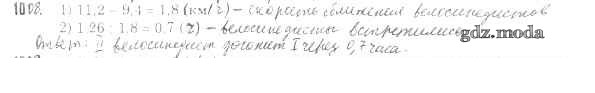 1098. 1) 11,2 – 9,4 = 1,8 (км/ч) – скорость сближения велосипедистов
2) 1,26 : 1,8 = 0,7 (ч) – велосипедисты встретились
gdz.moda
Ответ: II велосипедист догонит I через 0,7 часа.